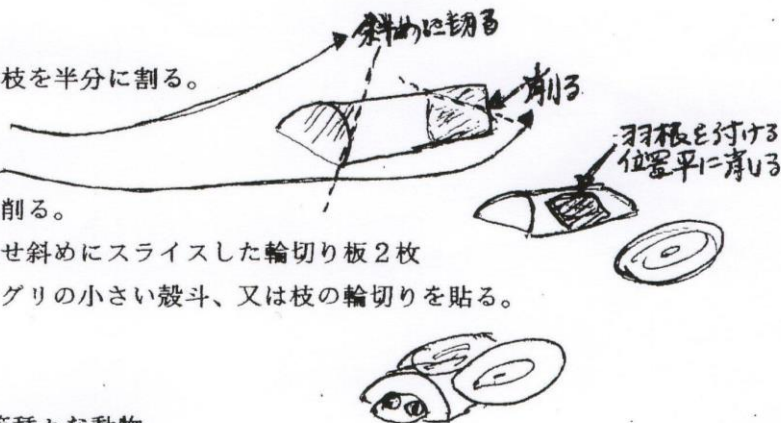 斜めに切る
枝を半分に割る。
削る
羽根を付ける
位置平に削る
削る。
せ斜めにスライスした輪切り板2枚
グリの小さい殻斗、又は枝の輪切りを貼る。